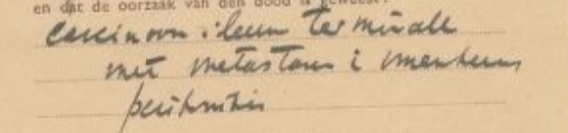 en dat de oorzaak van den dood is geweest:
carcinoom ileum terminale
met metastasen i omentum
peritonitis